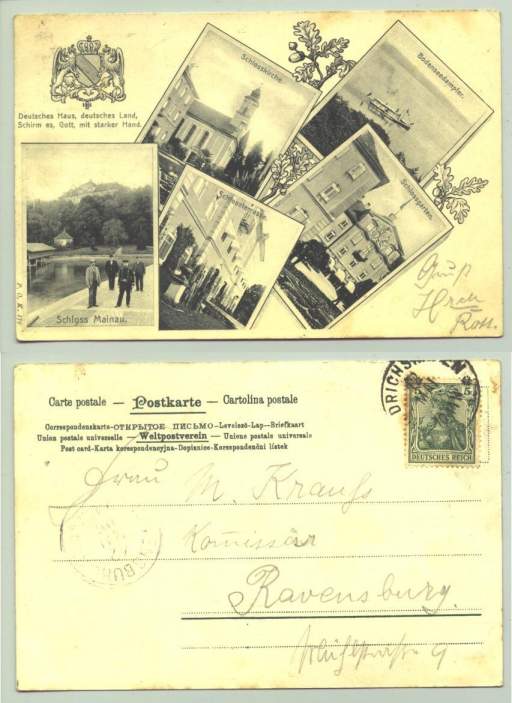 Deutsches Haus, deutsches Land,
Schirm es, Gott, mit starker Hand.
Schlosskirche.
Bodenseedampfer.
Schlossgarten.
Schloss Mainau.
Gruß
Carte postale — Postkarte — Cartolina postale
Correspondenskarte-ОТКРЫТОЕ ПИСЬМО-Levelező-Lap-Briefkaart
Union postale universelle — Weltpostverein — Unione postale universale
Post card-Karta korespondencyjna-Dopisnice-Korespondenční lístek
DRICHSHAFEN
5
DEUTSCHES REICH
Frau M. Krauß
Komissär
Ravensburg.
BURG